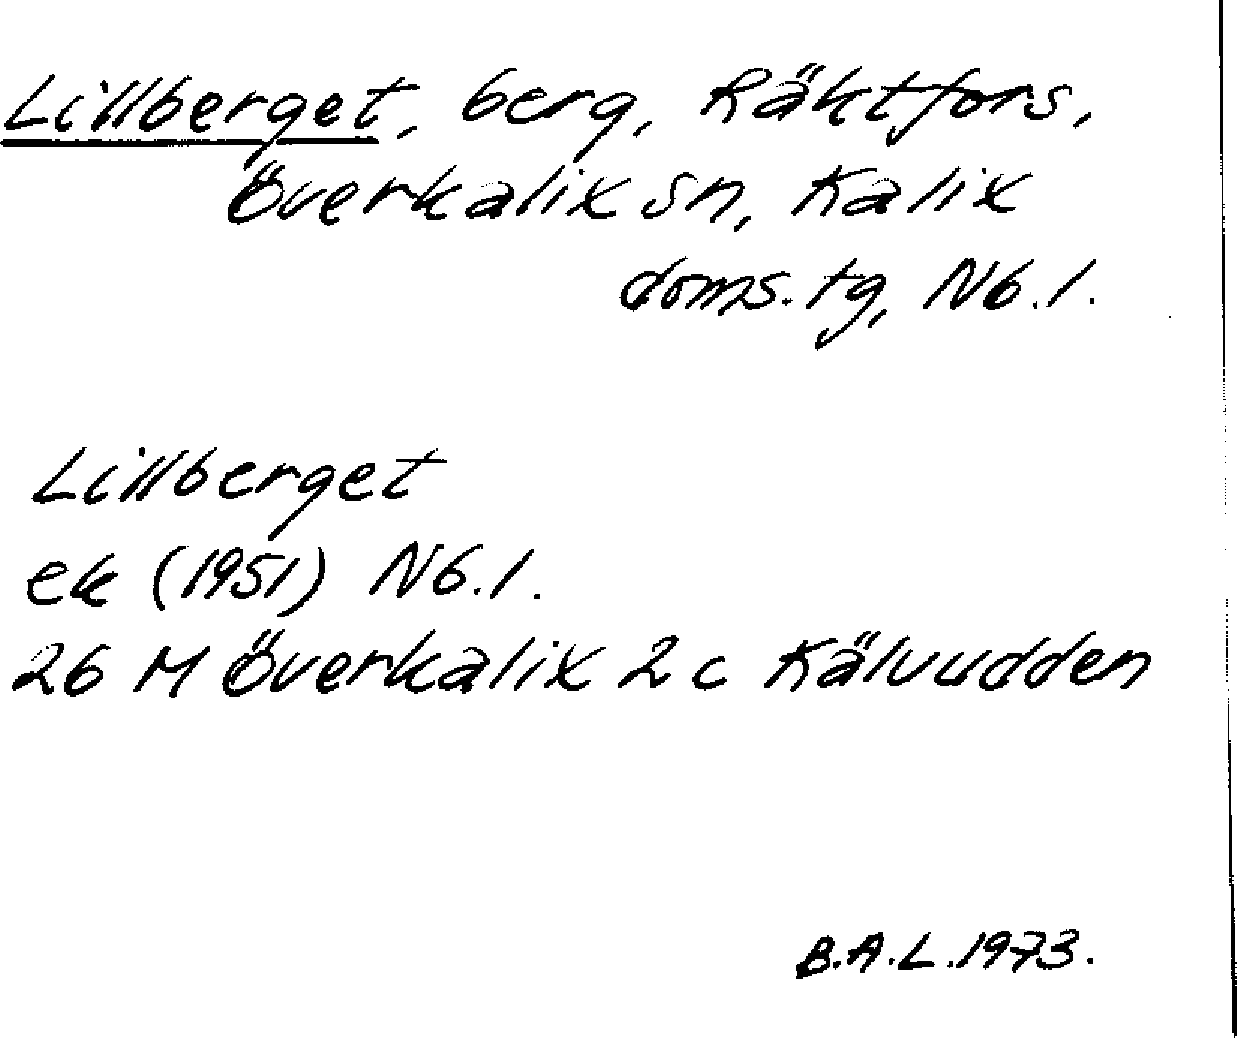 Lillberget, berg, Räktfors,
Överkalix sn, Kalix
doms. tg, Nb. l.
Lillberget
ek (1951) Nb. l.
26 M Överkalix 2 c Kälvudden
B.A.L. 1973.